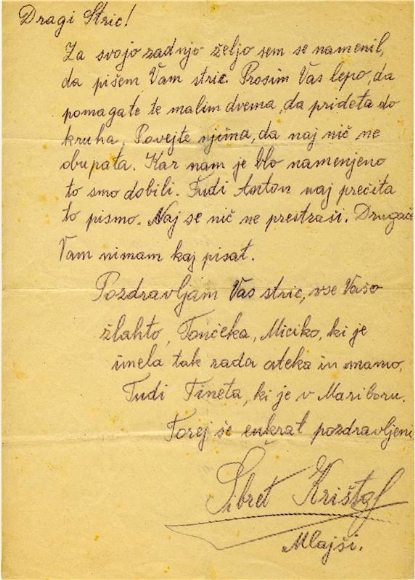 Dragi Stric!
Za svojo zadnjo željo sem se namenil,
da pišem Vam stric. Prosim Vas lepo, da
pomagate te malim dvema, da prideta do
kruha, Povejte njima, da naj nič ne
obupata. Kar nam je blo namenjeno
to smo dobili. Tudi Anton naj prečita
to pismo. Naj se nič ne prestraši. Drugač
Vam nimam kaj pisat.
Pozdravljam Vas stric, vso Vašo
žlahto, Tončeka, Miciko, ki je
imela tak rada ateka in mamo,
Tudi Tineta, ki je v Mariboru.
Torej še enkrat pozdravljeni
Sibret Krištof
Mlajši.